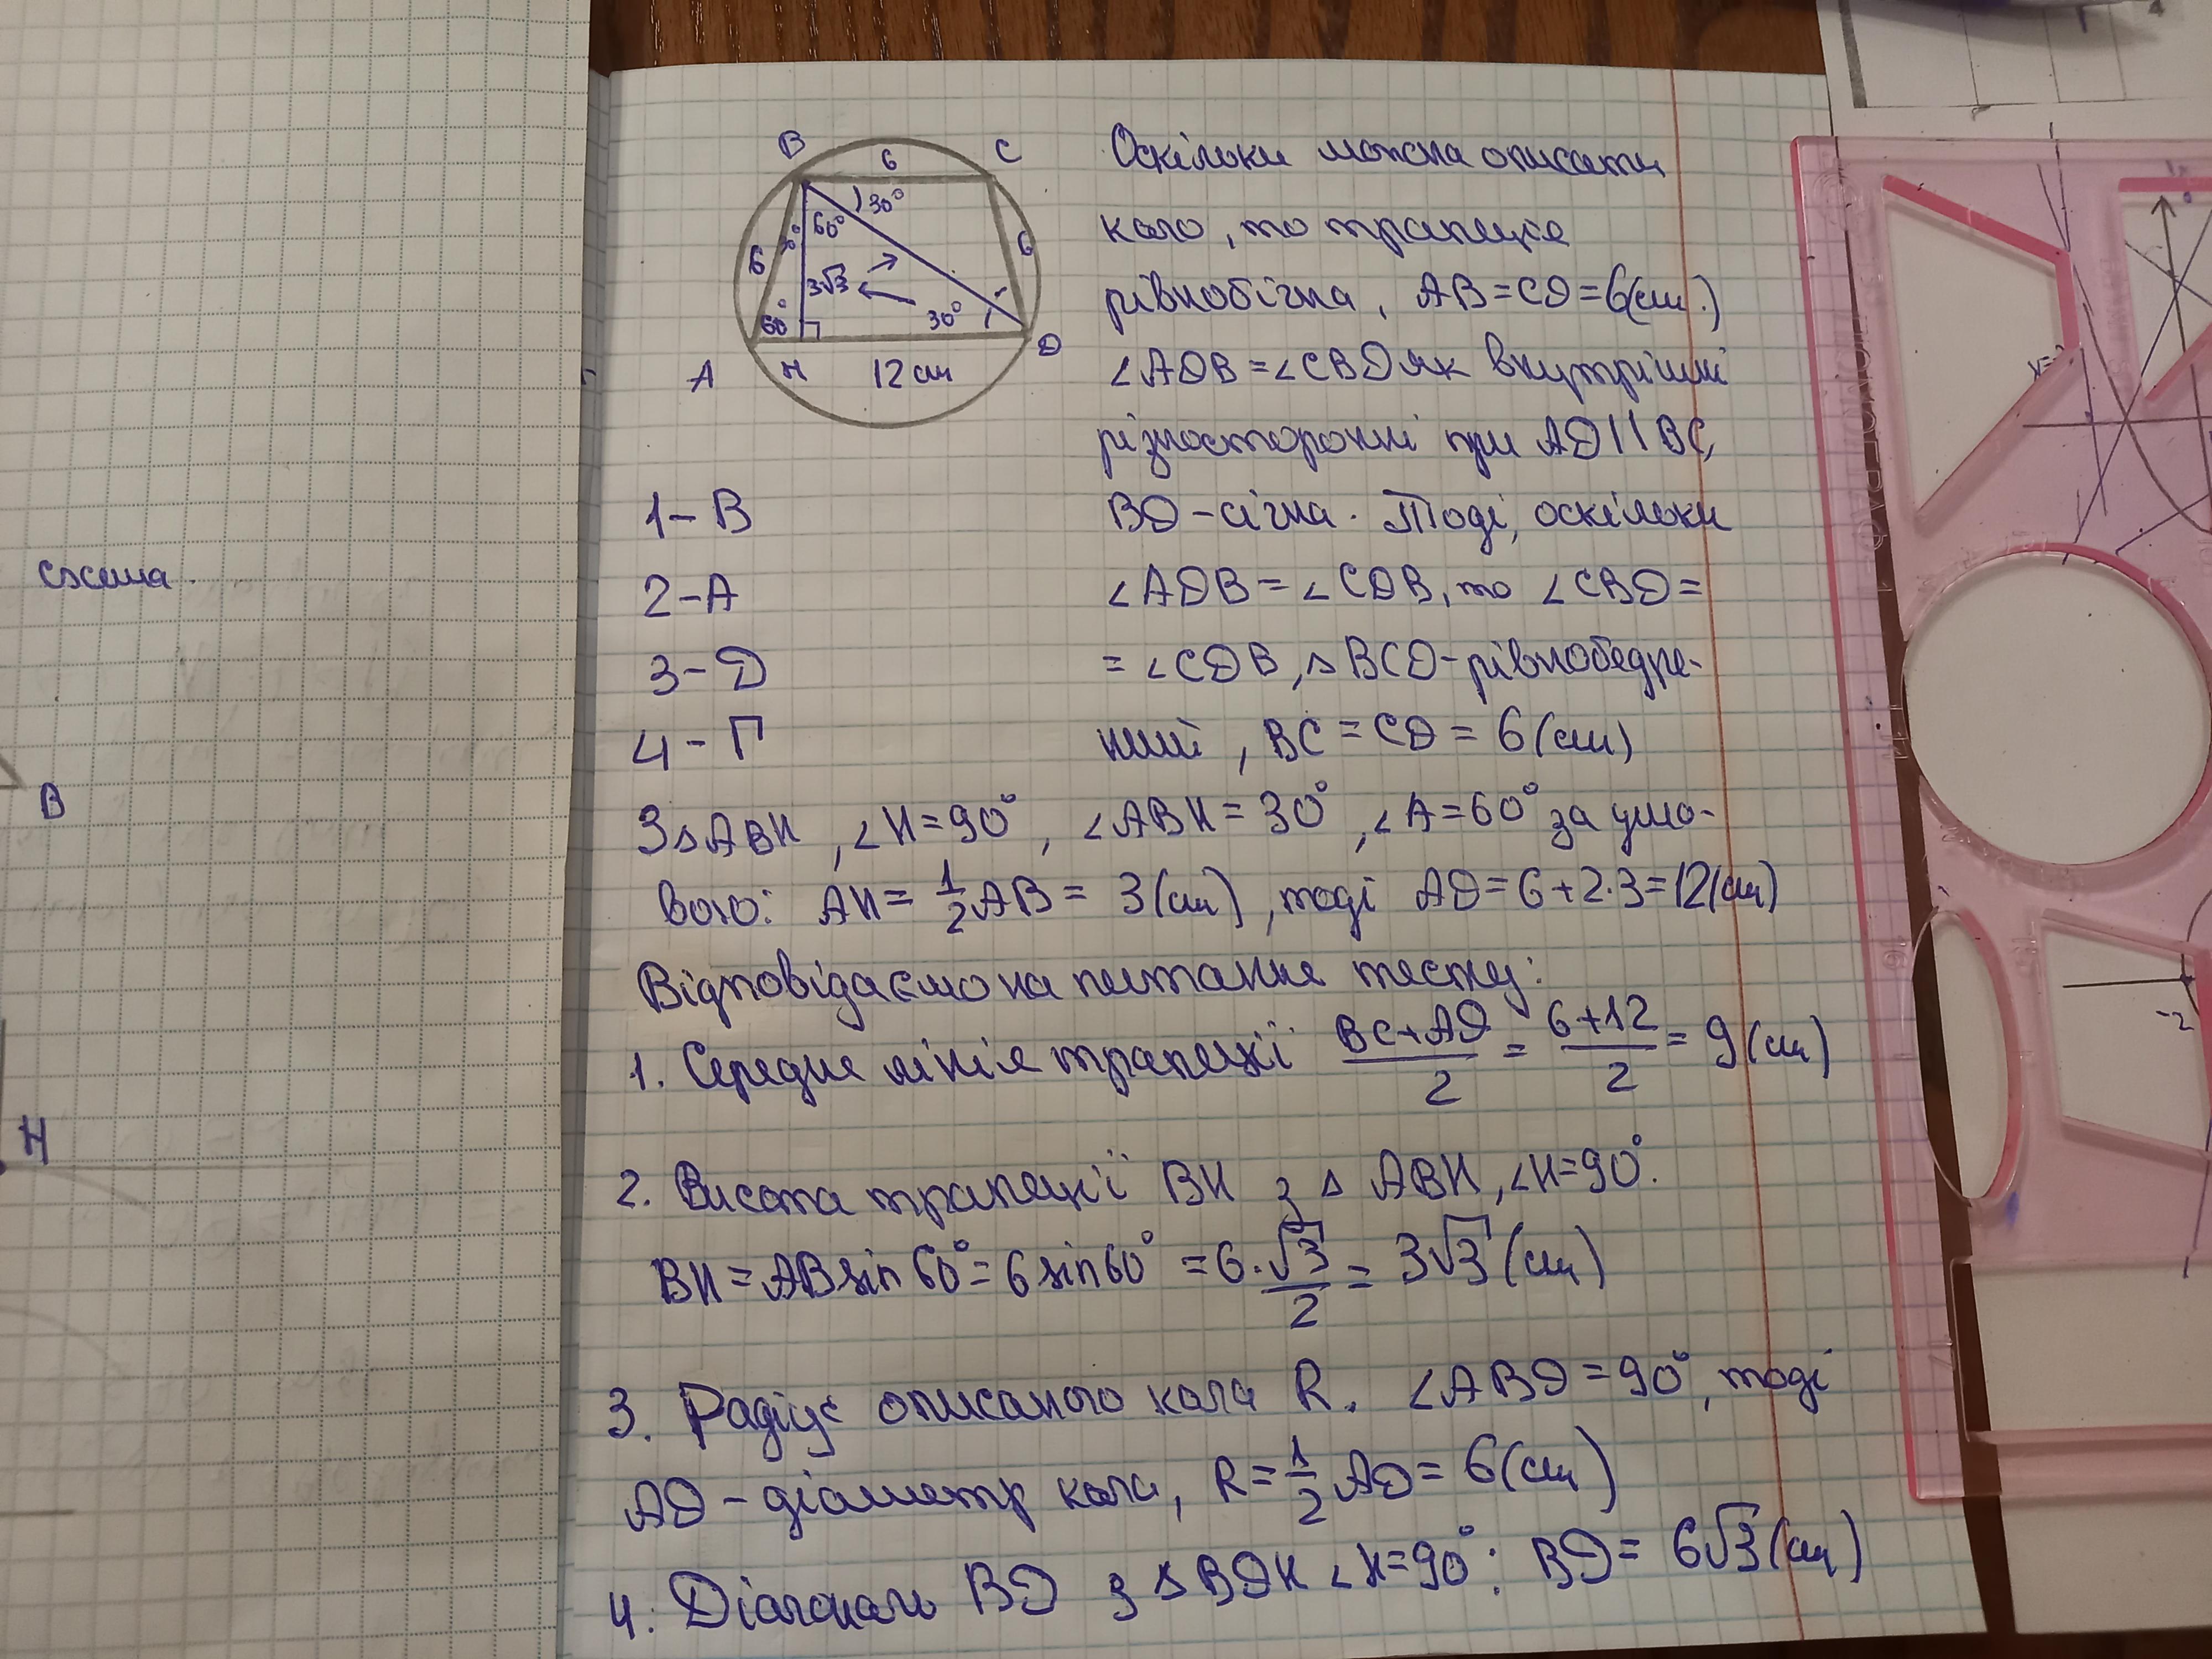 B
6
C
30°
60°
30°
6
6
3√3
60°
30°
A
H
12 см
D
Оскільки можна описати
коло, то трапеція
рівнобічна, AB=CD=6(см.)
∠ADB=∠CBD як внутрішні
різносторонні при AD||BC,
BD-січна. Тоді, оскільки
∠ADB=∠CDB, то ∠CBD=
=∠CDB, △BCD-рівнобедре-
ний, BC=CD=6(см)
1-В
2-А
3-Д
4-Г
З△ABH, ∠H=90°, ∠ABH=30°, ∠A=60° за умо-
вою: AH=1/2AB=3(см), тоді AD=6+2·3=12(см)
Відповідаємо на питання тесту:
1. Середня лінія трапеції (BC+AD)/2=(6+12)/2=9(см)
2. Висота трапеції BH з △ABH, ∠H=90°.
BH=ABsin60°=6sin60°=6·√3/2=3√3(см)
3. Радіус описаного кола R. ∠ABD=90°, тоді
AD-діаметр кола, R=1/2AD=6(см)
4. Діагональ BD з △BDH ∠H=90°: BD=6√3(см)
схема
B
H
-2
4